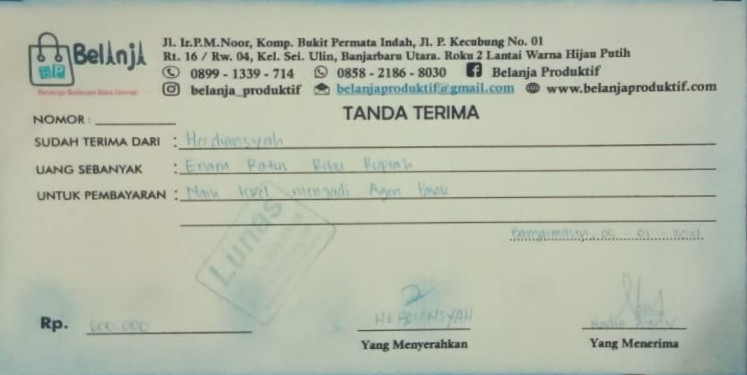 Belanja
BP
Jl. Ir.P.M.Noor, Komp. Bukit Permata Indah, Jl. P. Kecubung No. 01
Rt. 16 / Rw. 04, Kel. Sei. Ulin, Banjarbaru Utara. Roku 2 Lantai Warna Hijau Putih
0899 - 1339 - 714 0858 - 2186 - 8030 Belanja Produktif
belanja_produktif belanjaproduktif@gmail.com www.belanjaproduktif.com
TANDA TERIMA
NOMOR :
SUDAH TERIMA DARI : Herdiansyah
UANG SEBANYAK : Enam Ratus Ribu Rupiah
UNTUK PEMBAYARAN : Naik level menjadi Agen
Lunas
Rp. 600.000
HERDIANSYAH
Yang Menyerahkan
Yang Menerima